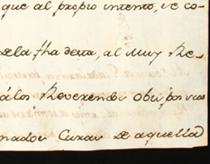 que al propio intento, se co-
dela fha desta, al Muy Re-
à los Reverendos Obispos sus
nados Curas de aquella